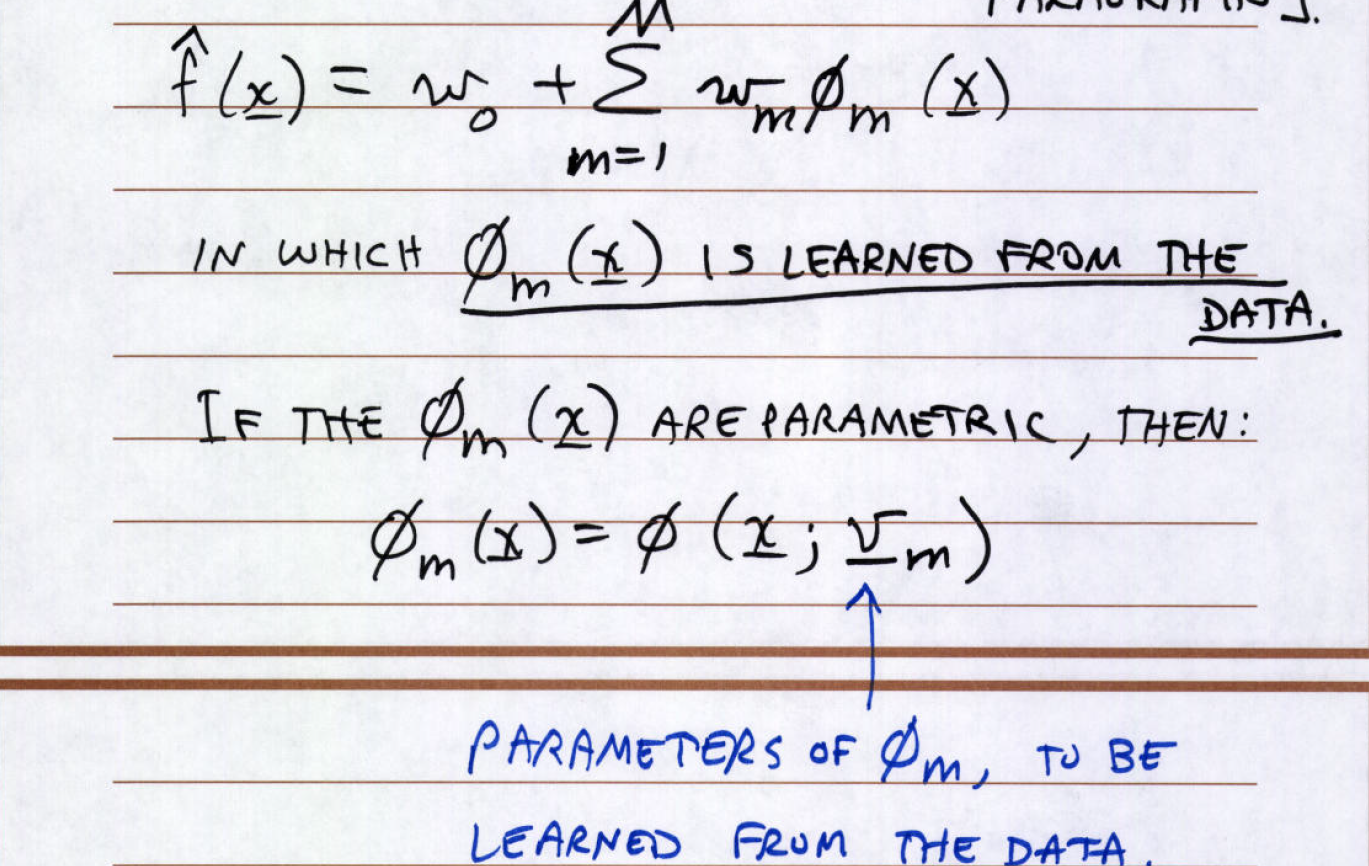 PARAGRAPHING.
f̂(x̲) = w₀ + Σ_{m=1}^{M} w_m ϕ_m(x̲)
IN WHICH ϕ_m(x̲) IS LEARNED FROM THE
DATA.
IF THE ϕ_m(x̲) ARE PARAMETRIC, THEN:
ϕ_m(x̲) = ϕ(x̲; v̲_m)
PARAMETERS OF ϕ_m, TO BE
LEARNED FROM THE DATA.